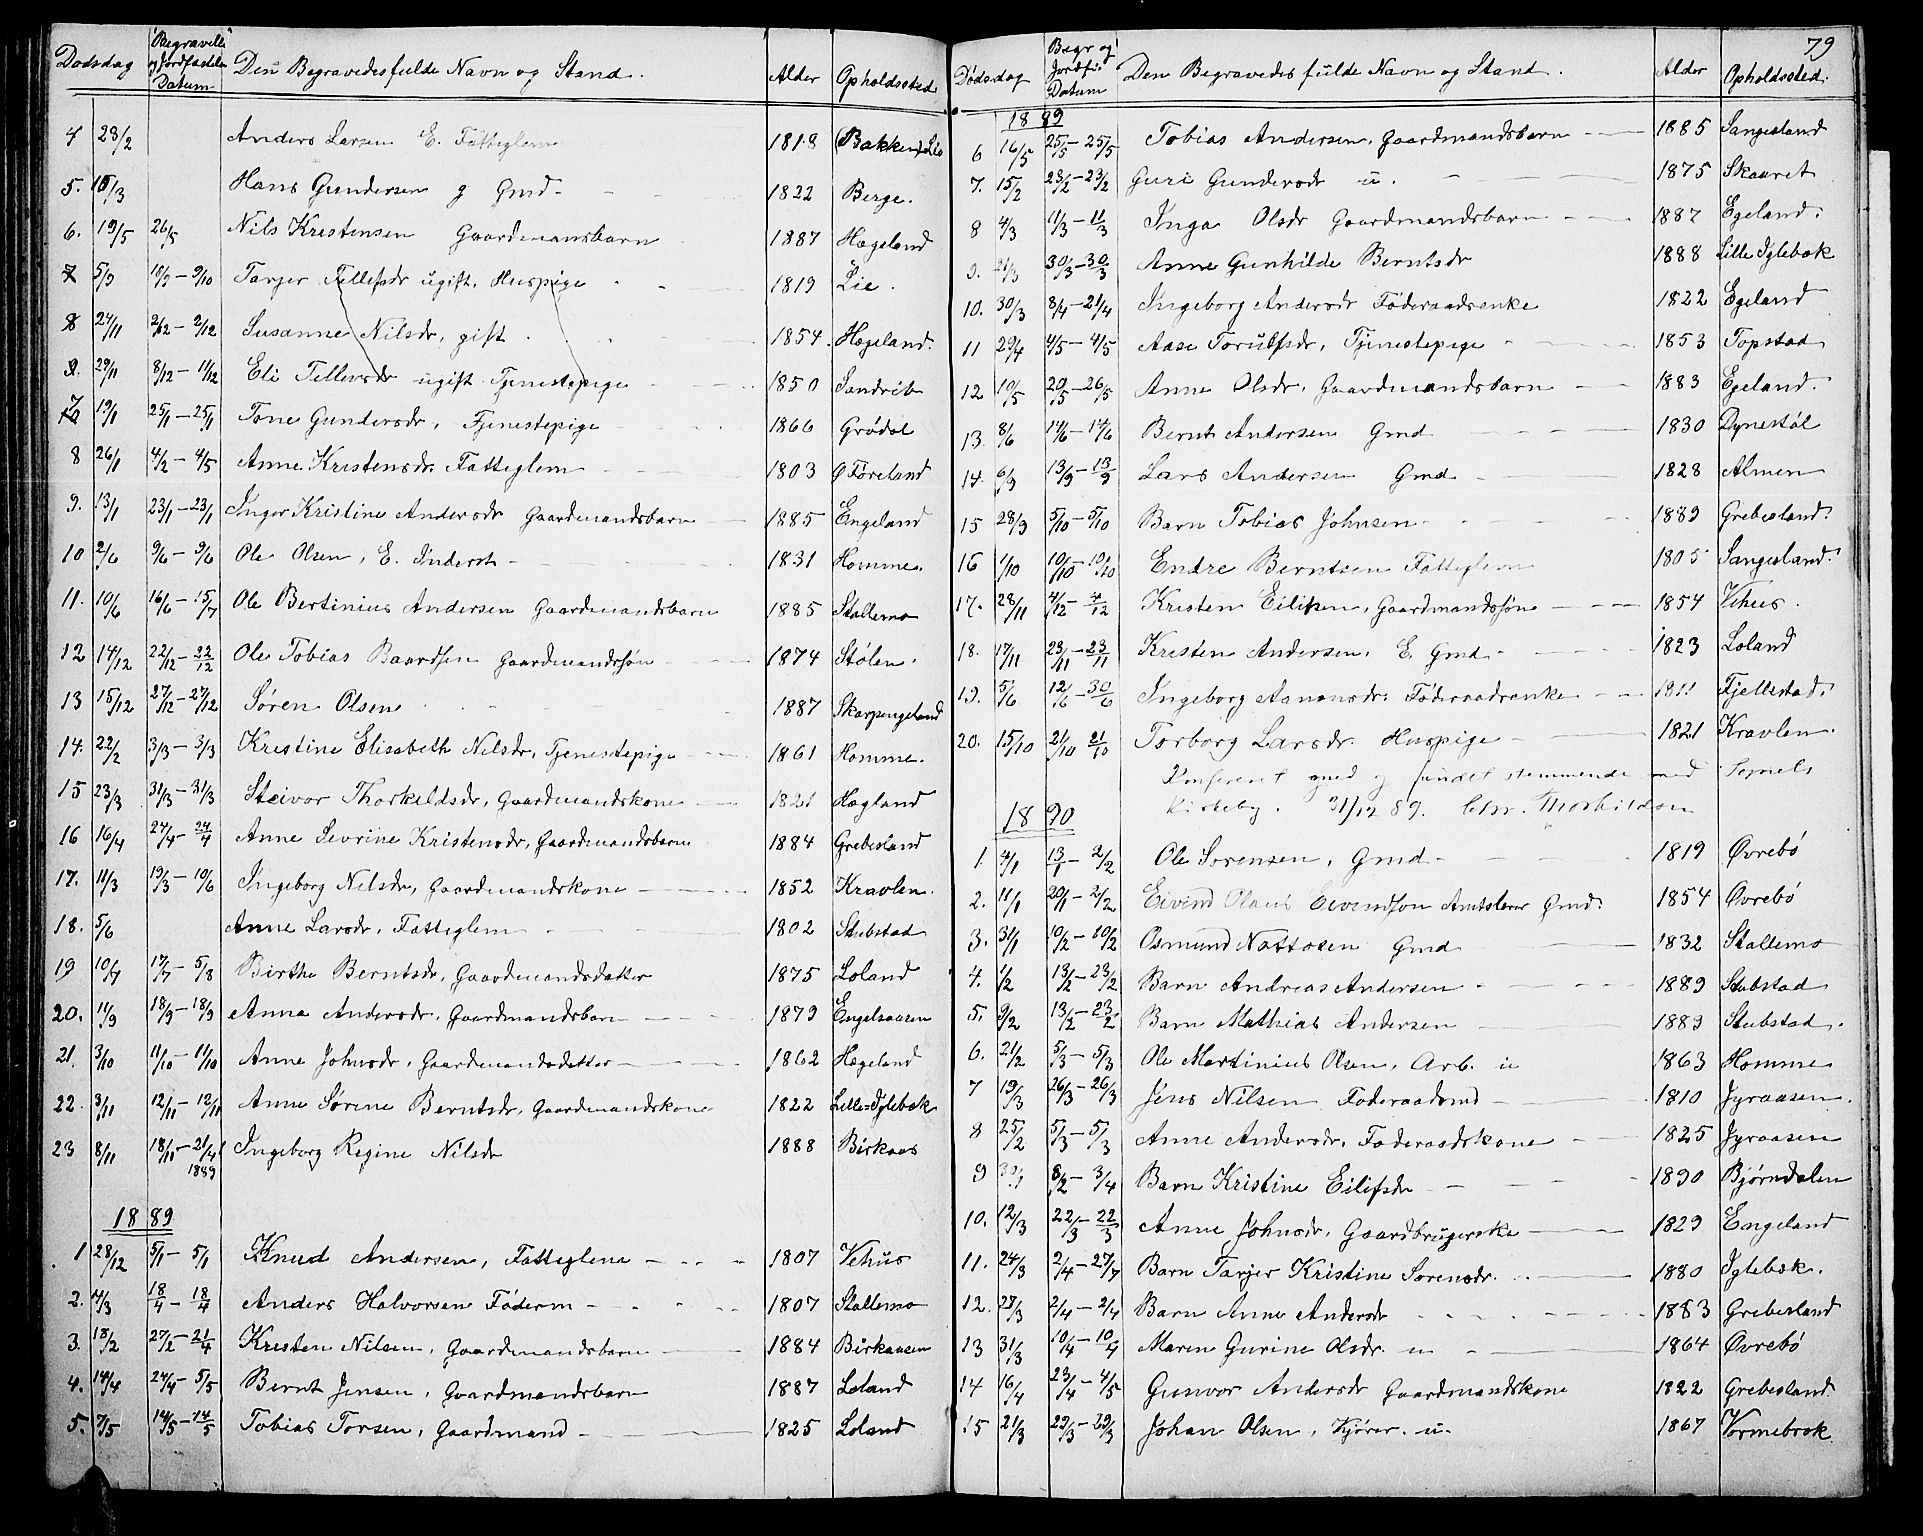 Dødsdag Begravelse og Jordfæstelse Datum Den Begravedes fulde Navn og Stand. Alder Opholdssted
4 23/2 Anders Larsen E. Fattiglem 1818 (Bakken) Lie
5. 16/3 Hans Gundersen g Gmd 1822 Berge.
6. 19/5 26/5 Nils Kristensen Gaardmansbarn 1887 Hageland
7 5/9 18/9 – 9/10 Tarjer Tellefsdr ugift, Huspige 1819 Lie.
8 24/11 2/12 – 2/12 Susanne Nilsdr, gift 1854. Hægeland.
9. 29/11 8/12 – 11/12 Eli Tellevsdr ugift Tjenestepige 1850 Sandrib
7 19/1 25/1 – 25/1 Tone Gundersdr, Tjenestepige 1866 Grødal
8 26/1 4/2 – 4/5 Anne Kristensdr. Fattiglem 1803 Ø Føreland
9. 13/1 23/1 – 23/1 Inger Kristine Andersdr Gaardmandsbarn 1885 Engeland
10 2/6 9/6 – 9/6 Ole Olsen, E. Inderst 1831 Homme.
11. 10/6 16/6 – 15/7 Ole Bertinius Andersen Gaardmandsbarn 1885 Stallemo
12 14/12 22/12 – 22/12 Ole Tobias Baardsen Gaardmandssøn 1874 Stølen.
13 15/12 27/12 – 27/12 Søren Olsen 1887 Skarpengeland
14. 22/2 3/3 – 3/3 Kristine Elisabeth Nilsdr, Tjenestepige 1861 Homme.
15 23/3 31/3 – 31/3 Steivor Thorkildsdr, Gaardmandskone 1821 Hægland
16 16/4 24/4 – 24/4 Anne Sevrine Kristensdr, Gaardmandsbarn 1884 Grebesland
17. 11/3 19/3 – 10/6 Ingeborg Nilsdr, Gaardmandskone 1852 Kravlen.
18. 5/6 Anne Larsdr, Fattiglem 1802 Stubstad
19 10/7 17/7 – 5/8 Birthe Berntsdr, Gaardmandsdatter 1875 Loland
20. 11/9 18/9 – 18/9 Anna Andersdr, Gaardmandsbarn 1879 Engelsaasen
21. 3/10 11/10 – 11/10 Anne Johnsdr, Gaardmandsdatter 1862 Hageland
22. 3/11 12/11 – 12/11 Anne Sørine Berntsdr, Gaardmandskone 1822 Lille=Iglebæk
23 8/11 18/11 – 21/4 1889 Ingeborg Regine Nilsdr 1888 Birkaas
1889
1 28/12 5/1 – 5/1 Knud Andersen, Fattiglem 1807 Vehus
2. 4/3 18/4 – 18/4 Anders Halvorsen Føderm 1807 Stallemo
3. 18/2 27/2 – 21/4 Kristen Nilsen, Gaardmandsbarn 1884 Birkaasen
4. 14/4 24/4 – 5/5 Bernt Jensen, Gaardmandsbarn 1887 Loland
5. 7/5 14/5 – 14/5 Tobias Torsen, Gaardmand 1825 Loland
79
Dødsdag Begr og Jordfæ. Datum Den Begravedes fulde Navn og Stand. Alder Opholdssted.
1889
6 16/5 25/5 – 25/5 Tobias Andersen, Gaardmandsbarn 1885 Sangesland
7. 15/2 23/2 – 23/2 Guri Gundersdr u. 1875 Skaaret
8 4/3 11/3 – 11/3 Inga Olsdr Gaardmandsbarn 1887 Egeland.
9. 21/3 30/3 – 30/3 Anne Gunhilde Berntsdr 1888 Lille Iglebæk
10. 30/3 8/4 – 21/4 Ingeborg Andersdr Føderaadsenke 1822 Egeland
11 29/4 4/5 – 4/5 Aase Torulfsdr, Tjenestepige 1853 Topstad
12 10/5 20/5 – 26/5 Anne Olsdr. Gaardmandsbarn 1883 Egeland.
13. 8/6 14/6 – 14/6 Bernt Andersen Gmd 1830 Dynestøl
14. 6/9 13/9 – 13/9 Lars Andersen Gmd 1828 Almen
15 28/9 5/10 – 5/10 Barn Tobias Johnsen 1889 Grebesland.
16 1/10 10/10 – 10/10 Endre Berntsen Fattiglem 1805 Sangesland.
17. 28/11 4/12 – 4/12 Kristen Eilifsen, Gaardmandssøn 1854 Vehus.
18. 17/11 23/11 – 23/11 Kristen Andersen, E. Gmd 1823 Loland
19. 5/6 12/6 – 30/6 Ingeborg Aanonsdr. Føderaadsenke 1811 Fjellestad.
20. 15/10 21/10 21/10 Torborg Larsdr. Huspige 1821 Kravlen.
Konfereret med og fundet stemmende med Sognets
Kirkebog. 31/12 89. Chr. Thorkildsen
1890
1. 4/1 13/1 – 2/2 Ole Sørensen, Gmd 1819 Øvrebø
2. 11/1 20/1 – 2/2 Eivind Olaus Eivindson Amtslærer Gmd. 1854 Øvrebø
3. 31/1 10/2 – 10/2 Osmund Nattosen Gmd 1832 Stallemo
4. 1/2 13/2 – 23/2 Barn Andreas Andersen 1889 Stubstad
5. 9/2 13/2 – 23/2 Barn Mathias Andersen 1889 Stubstad.
6. 21/2 5/3 – 5/3 Ole Martinius Olsen, Arb. u 1863 Homme
7 19/3 26/3 – 26/3 Jens Nilsen Føderaadsmd 1810 Jyraasen.
8 25/2 5/3 – 5/3 Anne Andersdr, Føderaadskone 1825 Jyraasen
9 30/1 8/2 – 3/4 Barn Kristine Eilifsdr 1890 Bjørndalen
10. 12/3 22/3 – 22/3 Anne Johnsdr, Gaardbrugerske 1829 Engeland
11. 24/3 2/4 – 27/7 Barn Tarjer Kristine Sørensdr. 1880 Iglebæk.
12. 28/3 2/4 – 2/4 Barn Anne Andersdr 1883 Grebesland
13 31/3 10/4 – 10/4 Maren Gurine Olsdr u 1864 Øvrebø
14 16/4 23/4 – 4/5 Gunvor Andersdr Gaardmandskone 1822 Grebesland
15 21/3 29/3 – 29/3 Johan Olsen, Kjører. u. 1867 Vormebrok